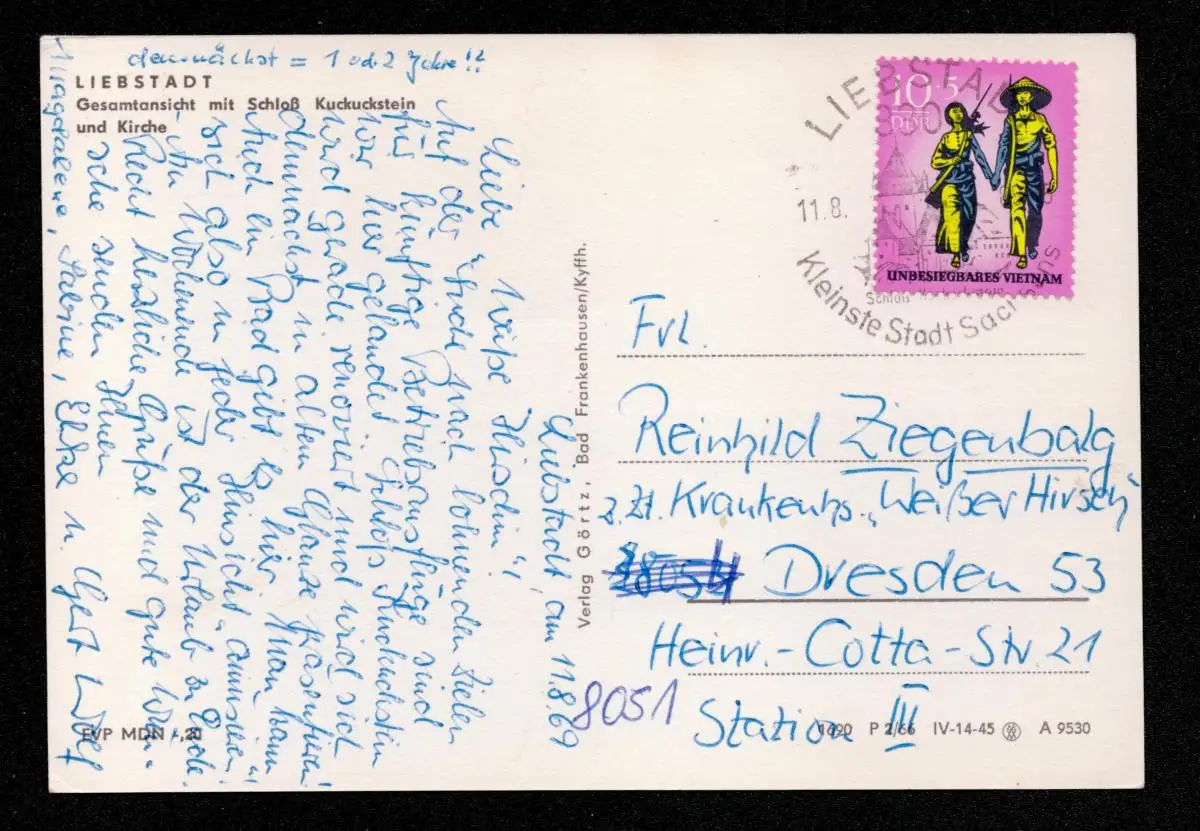 demnächst = 1 od. 2 Jahre!!
LIEBSTADT
Gesamtansicht mit Schloß Kuckuckstein
und Kirche
Liebstadt, am 11.8.69
Liebe "Weiße Hirschin"!
Auf der Suche nach lohnenden Zielen
für künftige Betriebsausflüge sind
wir hier gelandet. Schloß Kuckuckstein
wird gerade renoviert und wird sich
demnächst in altem Glanze präsentieren!
Auch ein Bad gibt es hier. Man kann
sich also in jeder Hinsicht „amüsieren".
Am Wochenende ist der Urlaub zu Ende.
Recht herzliche Grüße und gute Wün-
sche senden Ihnen
Magdalena, Sabine, Elke u. Gert Wolf
EVP MDN -,20
Verlag Görtz, Bad Frankenhausen/Kyffh.
LIEBSTADT
11.8.
Schloß
Kleinste Stadt Sachsens
10+5
DDR
UNBESIEGBARES VIETNAM
Frl.
Reinhild Ziegenbalg
z. Zt. Krankenhs. „Weißer Hirsch"
8054 Dresden 53
Heinr.-Cotta-Str 21
8051
Station III
1690 P 2/66 IV-14-45 A 9530